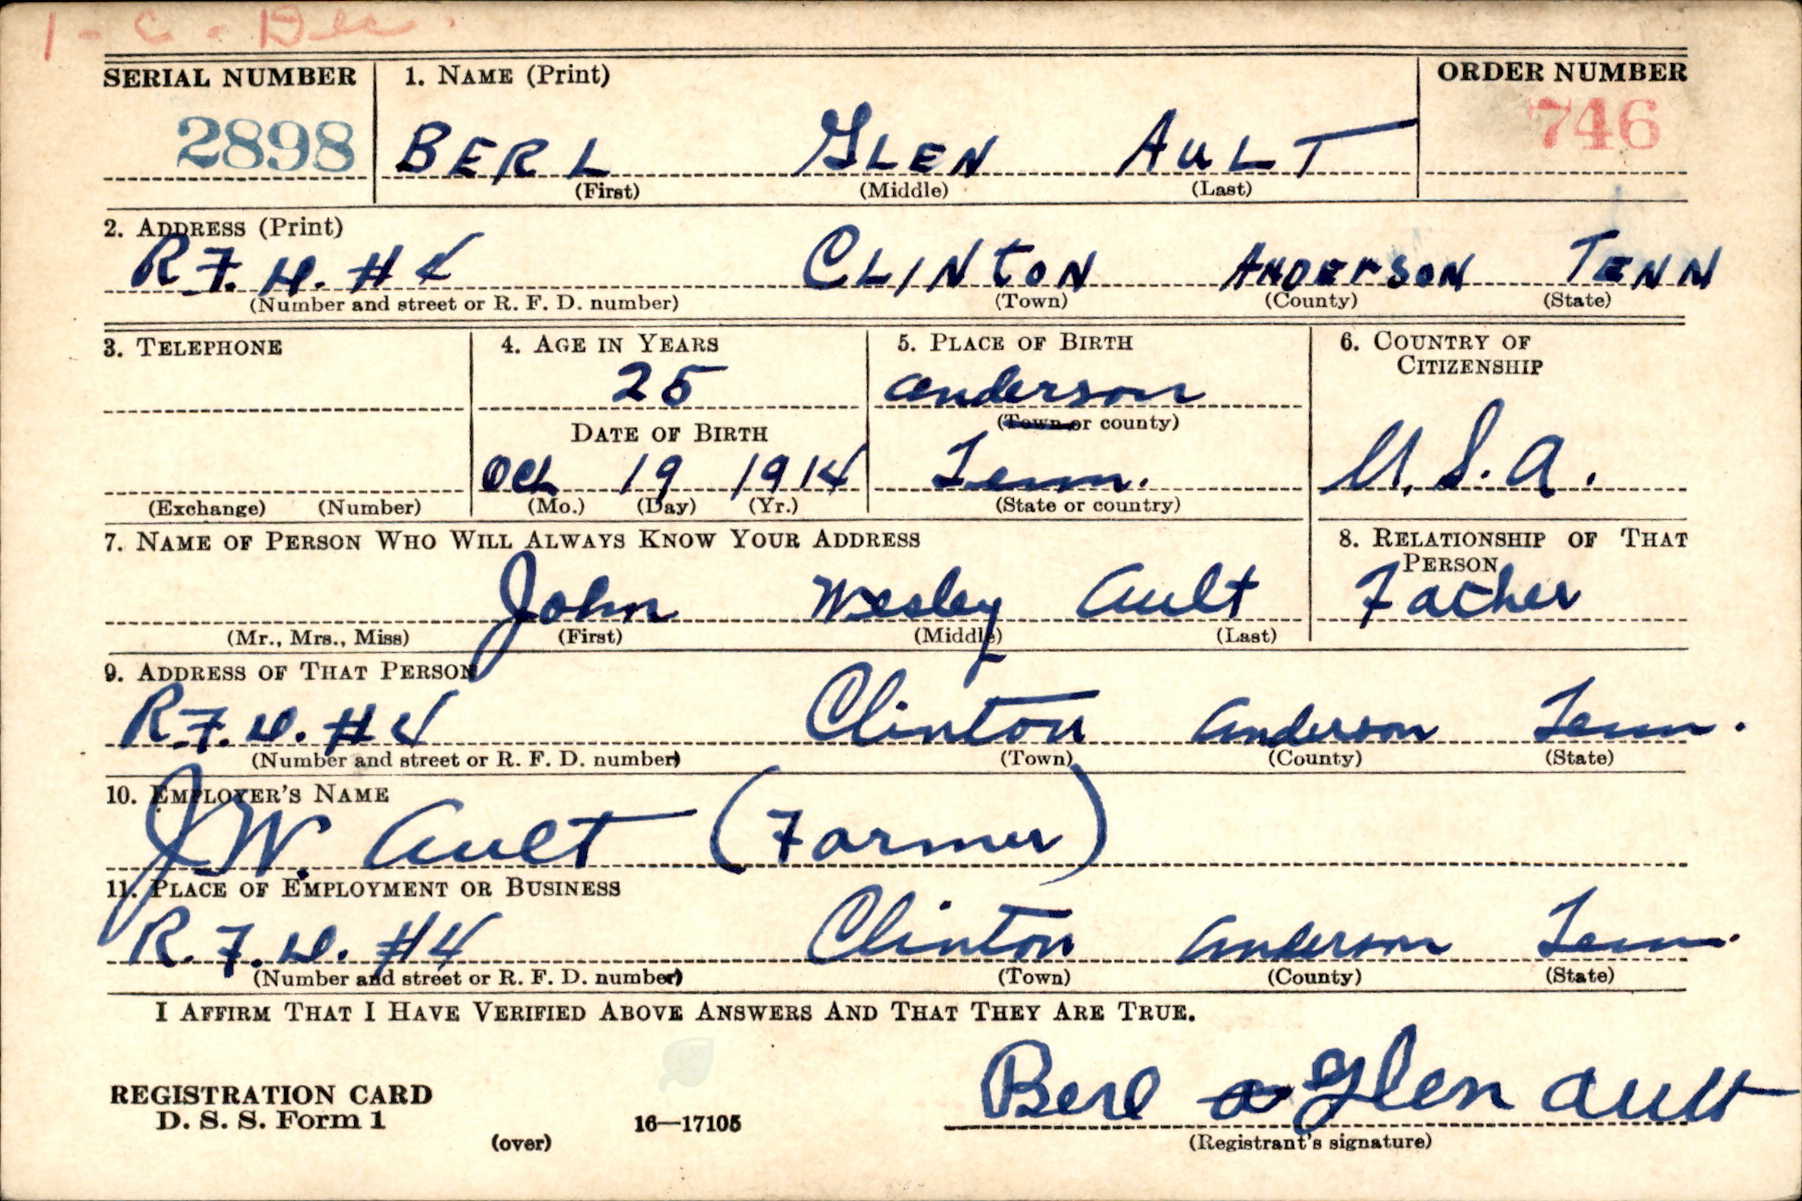 1-C-Dec.
SERIAL NUMBER 1. NAME (Print) ORDER NUMBER
2898 BERL GLEN AULT 746
(First) (Middle) (Last)
2. ADDRESS (Print)
R.F.D. #4 CLINTON ANDERSON TENN
(Number and street or R. F. D. number) (Town) (County) (State)
3. TELEPHONE 4. AGE IN YEARS 5. PLACE OF BIRTH 6. COUNTRY OF
CITIZENSHIP
25 Anderson
(Town or county)
DATE OF BIRTH
Oct 19 1914 Tenn. U.S.A.
(Exchange) (Number) (Mo.) (Day) (Yr.) (State or country)
7. NAME OF PERSON WHO WILL ALWAYS KNOW YOUR ADDRESS 8. RELATIONSHIP OF THAT
PERSON
John Wesley Ault Father
(Mr., Mrs., Miss) (First) (Middle) (Last)
9. ADDRESS OF THAT PERSON
R.F.D. #4 Clinton Anderson Tenn.
(Number and street or R. F. D. number) (Town) (County) (State)
10. EMPLOYER'S NAME
J.W. Ault (Farmer)
11. PLACE OF EMPLOYMENT OR BUSINESS
R.F.D. #4 Clinton Anderson Tenn.
(Number and street or R. F. D. number) (Town) (County) (State)
I AFFIRM THAT I HAVE VERIFIED ABOVE ANSWERS AND THAT THEY ARE TRUE.
Berl a Glen Ault
REGISTRATION CARD
D. S. S. Form 1 16—17105
(over) (Registrant's signature)